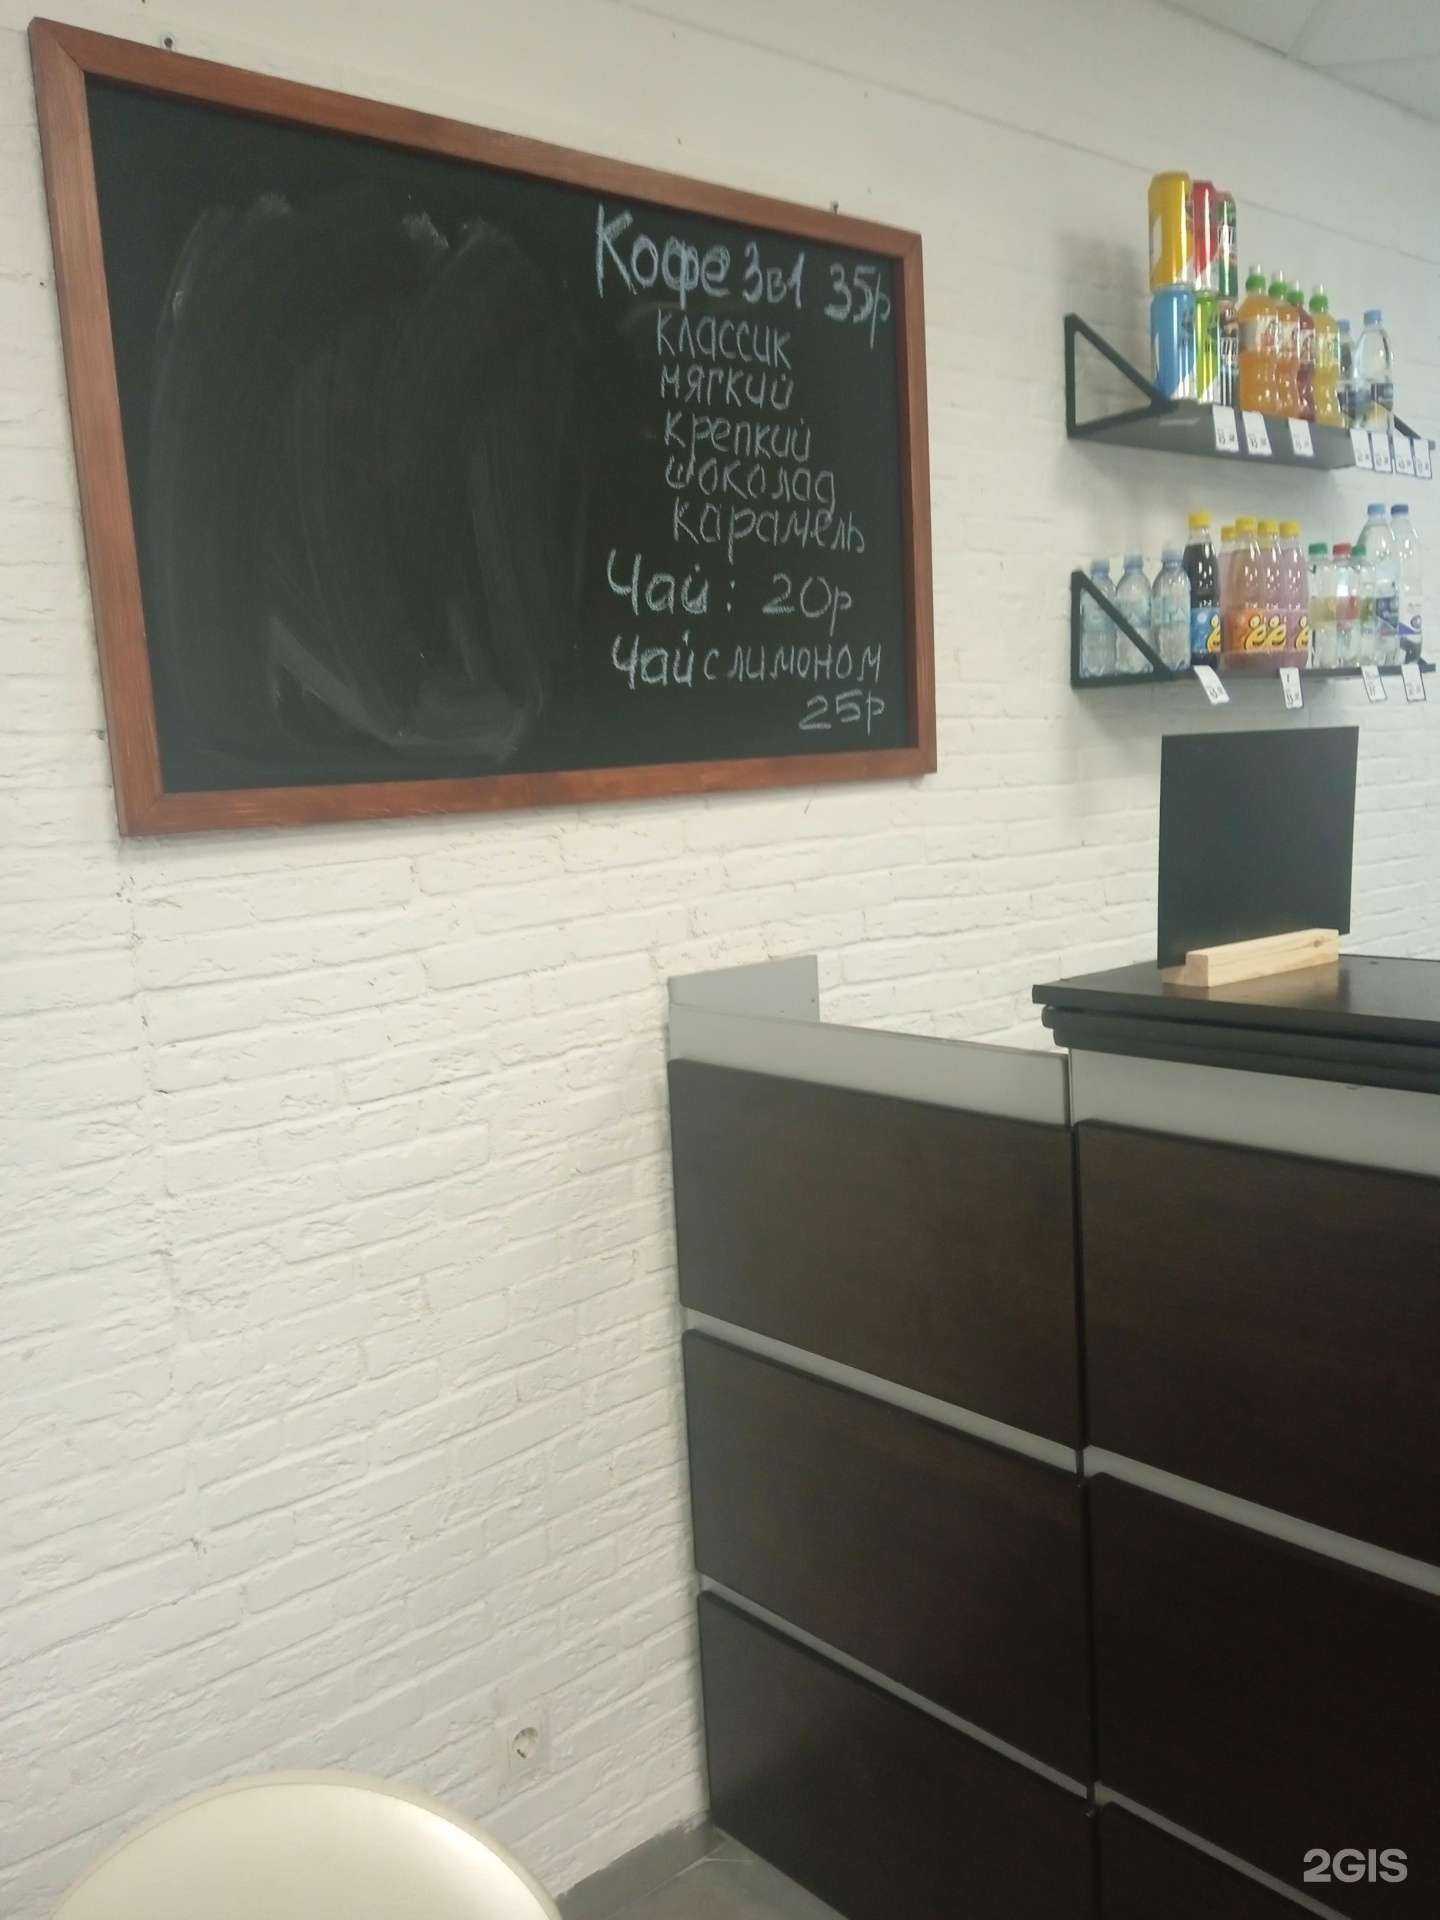 Кофе 3в1 35р
классик
мягкий
крепкий
шоколад
карамель
Чай: 20р
Чай с лимоном
25р
2GIS